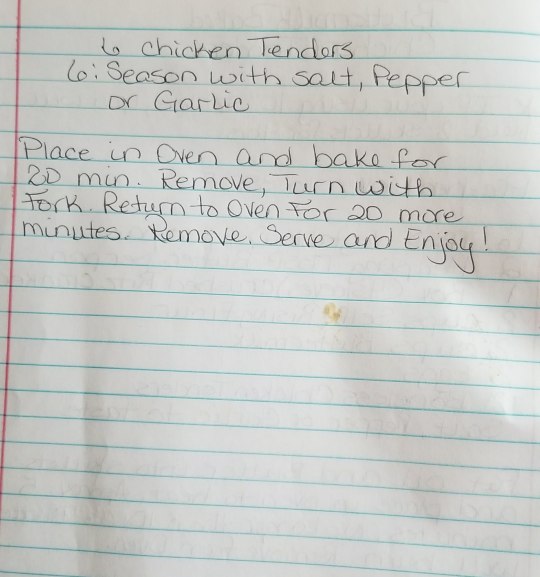 6 Chicken Tenders
6: Season with salt, Pepper
or Garlic
Place in Oven and bake for
20 min. Remove, Turn with
Fork. Return to Oven For 20 more
minutes. Remove. Serve and Enjoy!